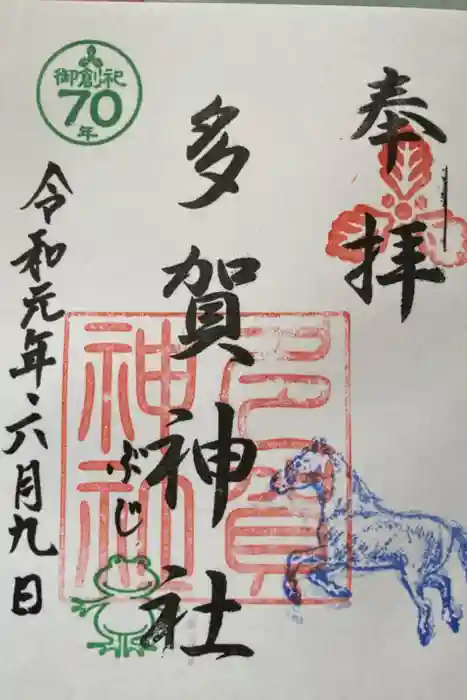 奉拝
多賀神社
多賀
神社
ぶじ
御創祀
70
年
令和元年、六月九日